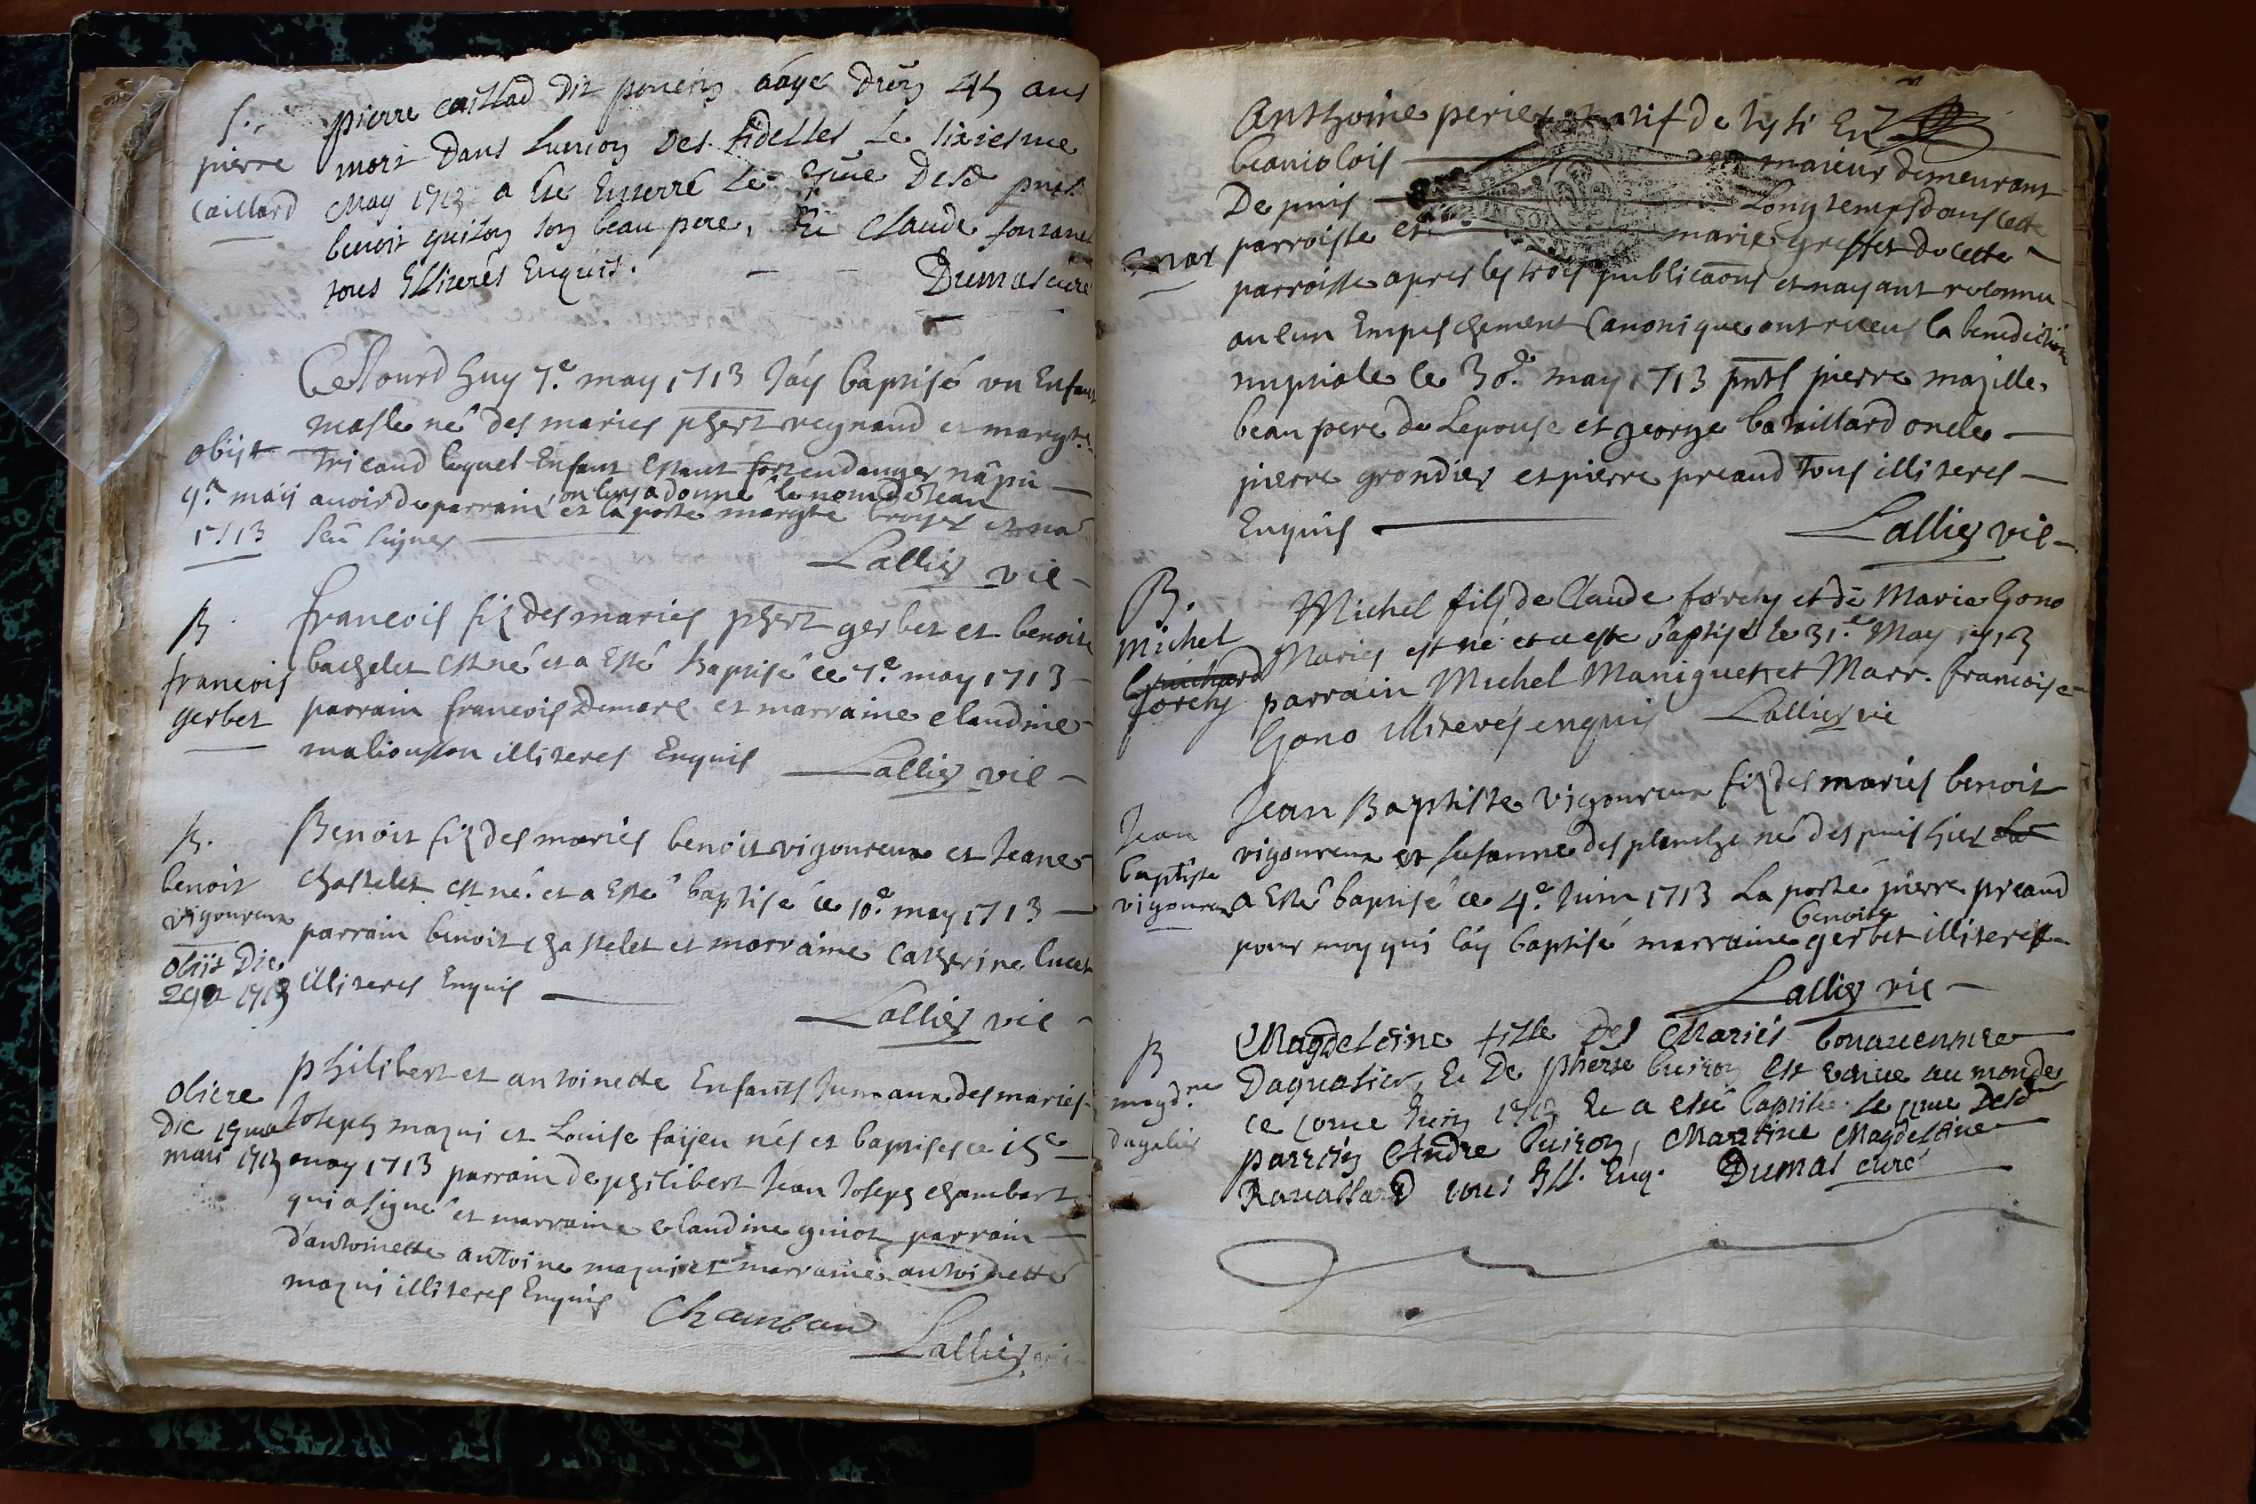 S.
pierre
Caillard
pierre caillad dit poncin aage d'environ 45 ans
mort dans l'union des fidelles le sixiesme
May 1713 a ésté Enterré le 7me Desd pnts
benoit guiton son beau pere, Et Claude fontanel
tous Illiterés Enquis.
Dumas curé
Cejourd huy 7.e may 1713 J'ay baptisé un Enfant
masle né des mariés phert regnaud et margte
obijt
9.a maij
1713
tricaud lequel Enfant Estant fort en danger n'a pû
avoir de parrain on luy a donné le nom de Jean
et la porté margte broyer et n'a
sçu signer
Lallier vic
B.
francois
gerbet
francois filz des mariés phert gerbet et benoite
bachelet est né et a Esté Baptisé ce 7.e may 1713
parrain francois Demare et marraine claudine
illiteres Enquis
Lallier vic
B.
benoit
vigoureux
obiit Die
1713
Benoit filz des mariés benoit vigoureux et Jeane
chastelet est né et a Esté baptisé ce 10.e may 1713
parrain benoit chastelet et marraine catherine lucet
illiteres Enquis
Lallier vic
obiere
Die 19ma
maii 1713
philibert et antoinette Enfants Jumaux des mariés
Joseph mazui et Louise faijen nés et baptises ce 15e
may 1713 parrain de philibert Jean Joseph chambard
qui a signé et marraine claudine guiot parrain
d'antoinette antoine mazui et marraine antoinette
mazui illiteres Enquis
Chambaud
Lallier
Anthoine perier natif de En
beaujolois majeur demeurant
Depuis Long temps dans cette
parroisse et marie greffet de cette
mar
parroisse apres les trois publicaons et n'ayant reconnu
aucun Empeschement Canonique ont receu la benediction
nuptiale le 30.e may 1713 pnts pierre mazille
beau pere de Lepouse et george bataillard oncle
pierre grondier et pierre preaud tous illiteres
Enquis
Lallier vic
B.
Michel
Guichard
forchy
Michel fils de Claude forchy et de Marie Gono
Maries est né et a esté baptisé le 31.e May 1713
parrain Michel Maniguet et Marr. francoise
Gono illiterés enquis Lallier vic
Jean
baptiste
vigoureux
Jean Baptiste vigoureux filz des mariés benoit
vigoureux et susanne desplanche né despuis hier
a Esté baptisé ce 4.e Juin 1713 La porté pierre preaud
pour moy qui l'ay baptisé marraine benoite gerbet illiteres
Lallier vic
B
magd.ne
dagalier
Magdeleine fille Des Mariés bonaventure
Dagualier, Et De pherte buiron est venue au monde
ce Juin 1713 Et a esté baptisée Le me Desd
parrein Andre buiron, Marrine Magdeleine
Ravassard tous Ill. Enq. Dumas curé